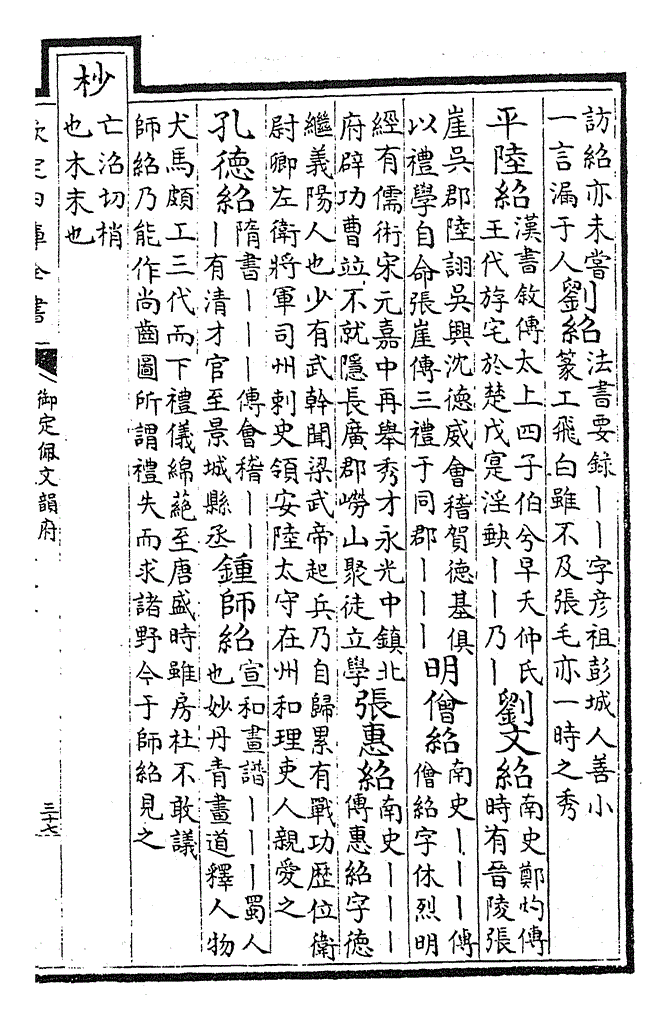 訪紹亦未嘗
一言漏于人
劉紹
法書要録丨丨字彦祖彭城人善小
篆工飛白雖不及張毛亦一時之秀
平陸紹
漢書敘傳太上四子伯兮早夭仲氏
王代斿宅於楚戊寔淫軼丨丨乃丨
劉文紹
南史鄭灼傳
時有晉陵張
崖吳郡陸詡吳興沈德威會稽賀德基俱
以禮學自命張崖傳三禮于同郡丨丨丨
明僧紹
南史丨丨丨傳
僧紹字休烈明
經有儒術宋元嘉中再舉秀才永光中鎮北
府辟功曹竝不就隱長廣郡嶗山聚徒立學
張惠紹
南史丨丨丨
傳惠紹字德
繼義陽人也少有武幹聞梁武帝起兵乃自歸累有戰功歴位衛
尉卿左衛將軍司州刺史領安陸太守在州和理吏人親愛之
孔德紹
隋書丨丨丨傳會稽丨丨
丨有清才官至景城縣丞
鍾師紹
宣和畫譜丨丨丨蜀人
也妙丹青畫道釋人物
犬馬頗工三代而下禮儀綿蕝至唐盛時雖房杜不敢議
師紹乃能作尚齒圖所謂禮失而求諸野今于師紹見之
杪
亡沼切梢
也木末也
欽定四庫全書
御定佩文韻府
三十七